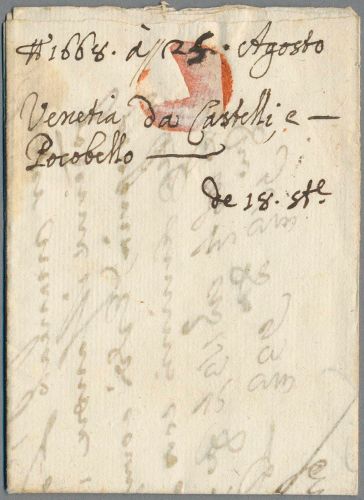 #1668. à // 25. Agosto
Venetia da Castelli, e —
Pocobello —
de 18. ste.